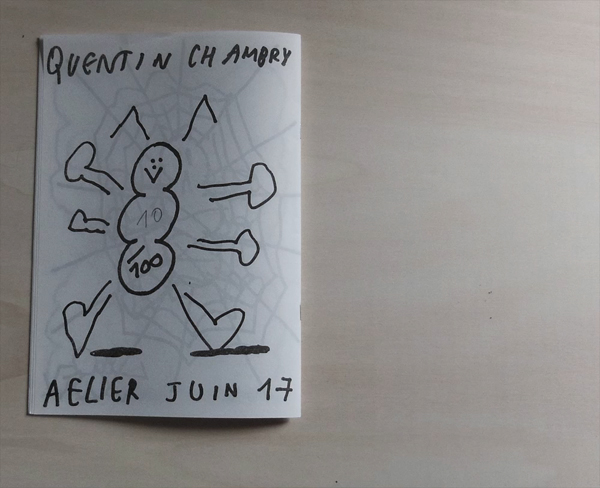 QUENTIN CHAMBRY
10
100
AELIER JUIN 17